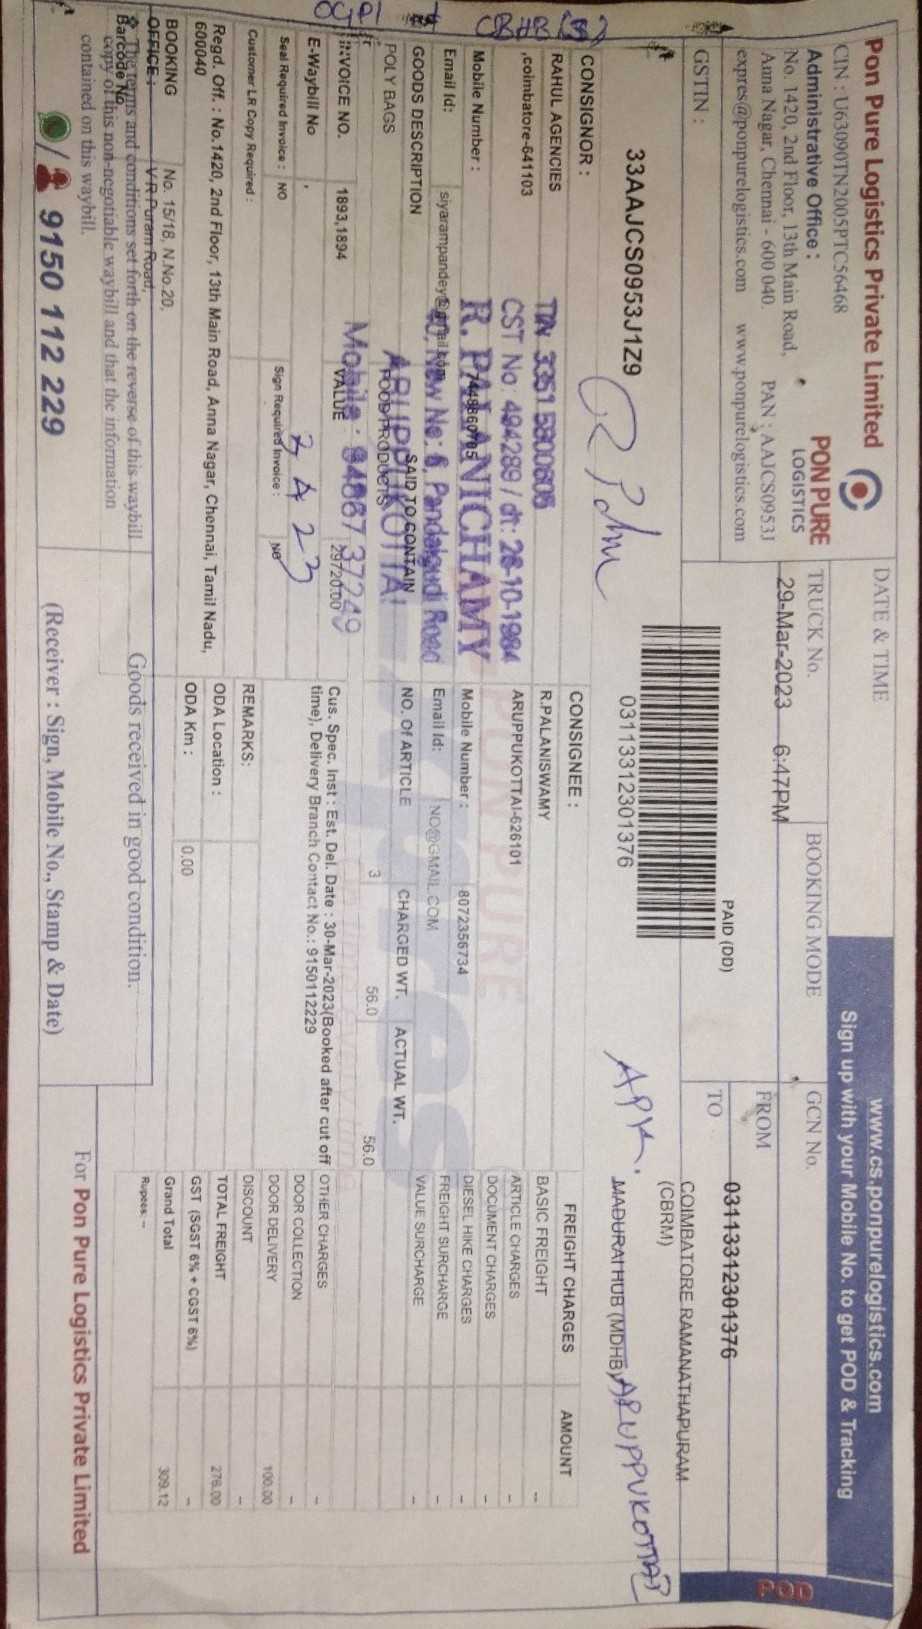 Pon Pure Logistics Private Limited
CIN : U63090TN2005PTC56468
Administrative Office :
No. 1420, 2nd Floor, 13th Main Road,
Anna Nagar, Chennai - 600 040. PAN : AAJCS0953J
expres@ponpurelogistics.com www.ponpurelogistics.com
PON PURE
LOGISTICS
GSTIN :
33AAJCS0953J1Z9
DATE & TIME
29-Mar-2023 6:47PM
TRUCK No.
BOOKING MODE
PAID (DD)
www.cs.ponpurelogistics.com
Sign up with your Mobile No. to get POD & Tracking
GCN No.
03113312301376
FROM
COIMBATORE RAMANATHAPURAM
(CBRM)
TO
MADURAI HUB (MDHB)
APK.
ARUPPUKOTTAI
POD
03113312301376
CONSIGNOR :
RAHUL AGENCIES
,coimbatore-641103
Mobile Number :
Email Id:
CONSIGNEE :
R.PALANISWAMY
ARUPPUKOTTAI-626101
Mobile Number : 8072356734
Email Id: NO@GMAIL.COM
TIN 3351 5800805
CST No. 494289 / dt: 28-10-1984
R. PALANICHAMY
New No: 6, Pandalgudi Road
ARUPPUKOTTAI
Mobile : 94867 37249
GOODS DESCRIPTION
SAID TO CONTAIN
POLY BAGS
FOOD PRODUCTS
NO. Of ARTICLE
CHARGED WT.
ACTUAL WT.
3
56.0
56.0
INVOICE NO.
1893,1894
VALUE
29720.00
E-Waybill No
,
Seal Required Invoice : NO
Sign Required Invoice : NO
Customer LR Copy Required :
Cus. Spec. Inst : Est. Del. Date : 30-Mar-2023(Booked after cut off
time), Delivery Branch Contact No.: 9150112229
REMARKS:
ODA Location :
ODA Km : 0.00
FREIGHT CHARGES AMOUNT
BASIC FREIGHT --
ARTICLE CHARGES --
DOCUMENT CHARGES --
DIESEL HIKE CHARGES --
FREIGHT SURCHARGE --
VALUE SURCHARGE --
OTHER CHARGES --
DOOR COLLECTION --
DOOR DELIVERY 100.00
DISCOUNT --
TOTAL FREIGHT 276.00
GST (SGST 6% + CGST 6%) --
Grand Total 309.12
Rupees: --
Regd. Off. : No.1420, 2nd Floor, 13th Main Road, Anna Nagar, Chennai, Tamil Nadu,
600040
BOOKING
OFFICE :
No. 15/18, N.No.20,
V R Puram Road,
Barcode No
The terms and conditions set forth on the reverse of this waybill
copy of this non-negotiable waybill and that the information
contained on this waybill.
9150 112 229
Goods received in good condition.
(Receiver : Sign, Mobile No., Stamp & Date)
For Pon Pure Logistics Private Limited